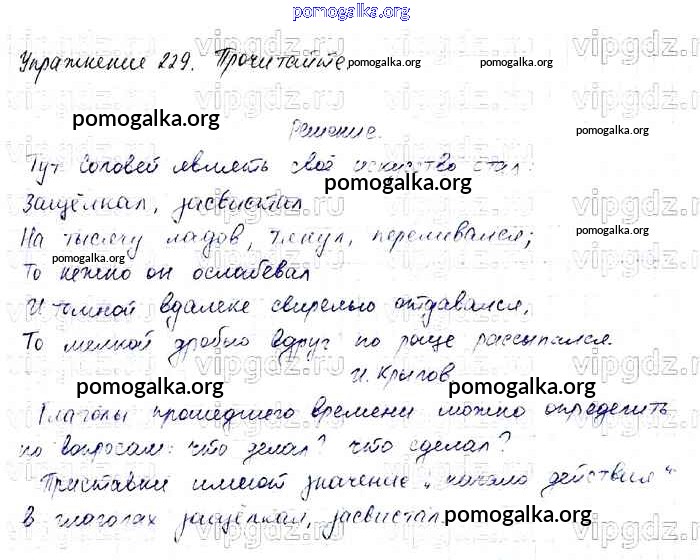 pomogalka.org
Упражнение 229. Прочитайте
pomogalka.org pomogalka.org
vipgdz.ru
pomogalka.org
Решение.
Тут Соловей являть своё искусство стал:
pomogalka.org
Защёлкал, засвистал
pomogalka.org
На тысячу ладов, тянул, переливался;
То нежно он ослабевал
И томной вдалеке свирелью отдавался,
То мелкой дробью вдруг по роще рассыпался.
И. Крылов
pomogalka.org pomogalka.org
Глаголы прошедшего времени можно определить
по вопросам: что делал? что сделал?
Приставки имеют значение "начало действия"
в глаголах защёлкал, засвистал
pomogalka.org